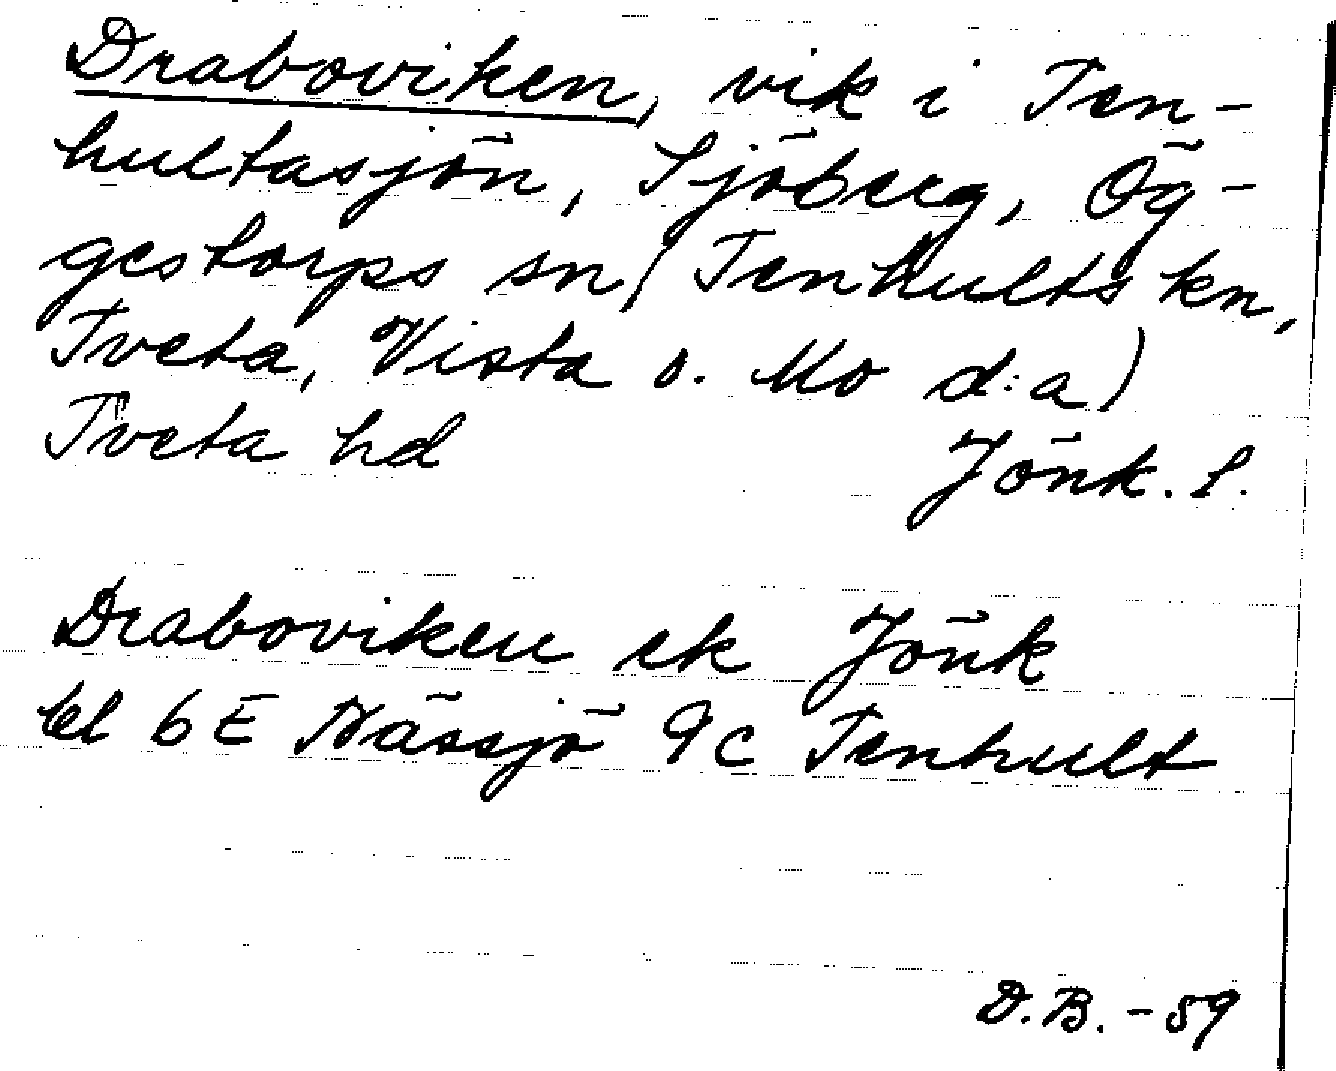 Draboviken, vik i Ten-
hultasjön, Sjöberg, Ög-
gestorps sn (Tenhults kn,
Tveta, Vista o. Mo d:a)
Tveta hd Jönk. l.
Draboviken ek Jönk
bl 6E Nässjö 9c Tenhult
D.B. -59